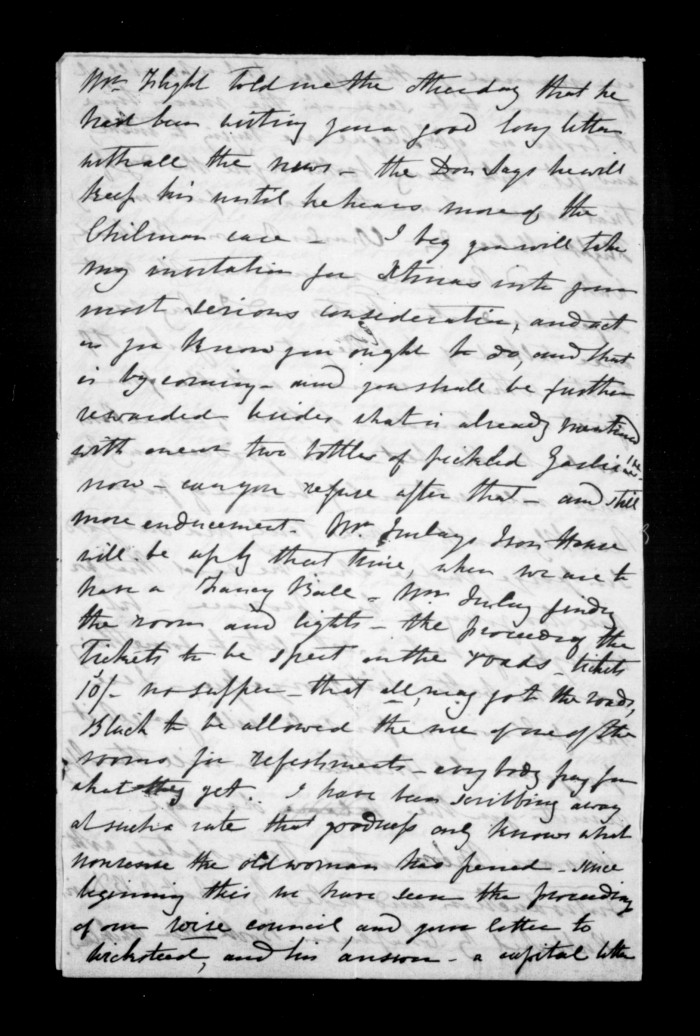 Mr. Flight told me the other day that he
had been writing you a good long letter
with all the news - the Don says he will
keep his until he hears more of the
Chilman case - I beg you will take
my invitation for Xtmas into your
most serious consideration, and act
as you know you ought to do, and that
is by coming - and you shall be further
rewarded besides what is already mentioned
with one or two bottles of pickled
now - can you refuse after that - and still
more enducement. Mr. Imlays Iron House
will be up by that time, when we are to
have a Fancy Ball - Mr Imlay finding
the rooms and lights - the proceeds of the
Tickets to be spent on the roads - tickets
10/- no supper - that all may go to the roads,
Black to be allowed the use of one of the
rooms for refeshments - every body pay for
what they get. I have been scribbling away
at such a rate that goodness only knows what
nonsense the old woman has penned - since
beginning this we have seen the proceeding
of our wise council and your letter to
Wicksteed, and his answer - a capital letter